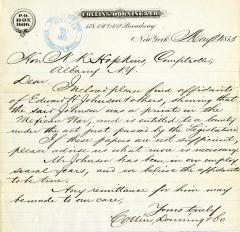 P.O.
BOX
1606.
COLLINS, DOWNING & CO.
Broadway
New York,
Hon. Comptroller,
Albany N.Y.
Dear
Inclosed please find affidavits
of Edward Johnson & others, showing that
the said Johnson was a private in the
Mexican War, and is entitled to a bounty
under the act just passed by the Legislature
If these papers are not sufficient,
please advise us what more is necessary.
Mr Johnson has been in our employ
several years, and we believe the affidavits
to be true.
Any remittance for him may
be made to our care,
Yours truly
Collins, Downing & Co